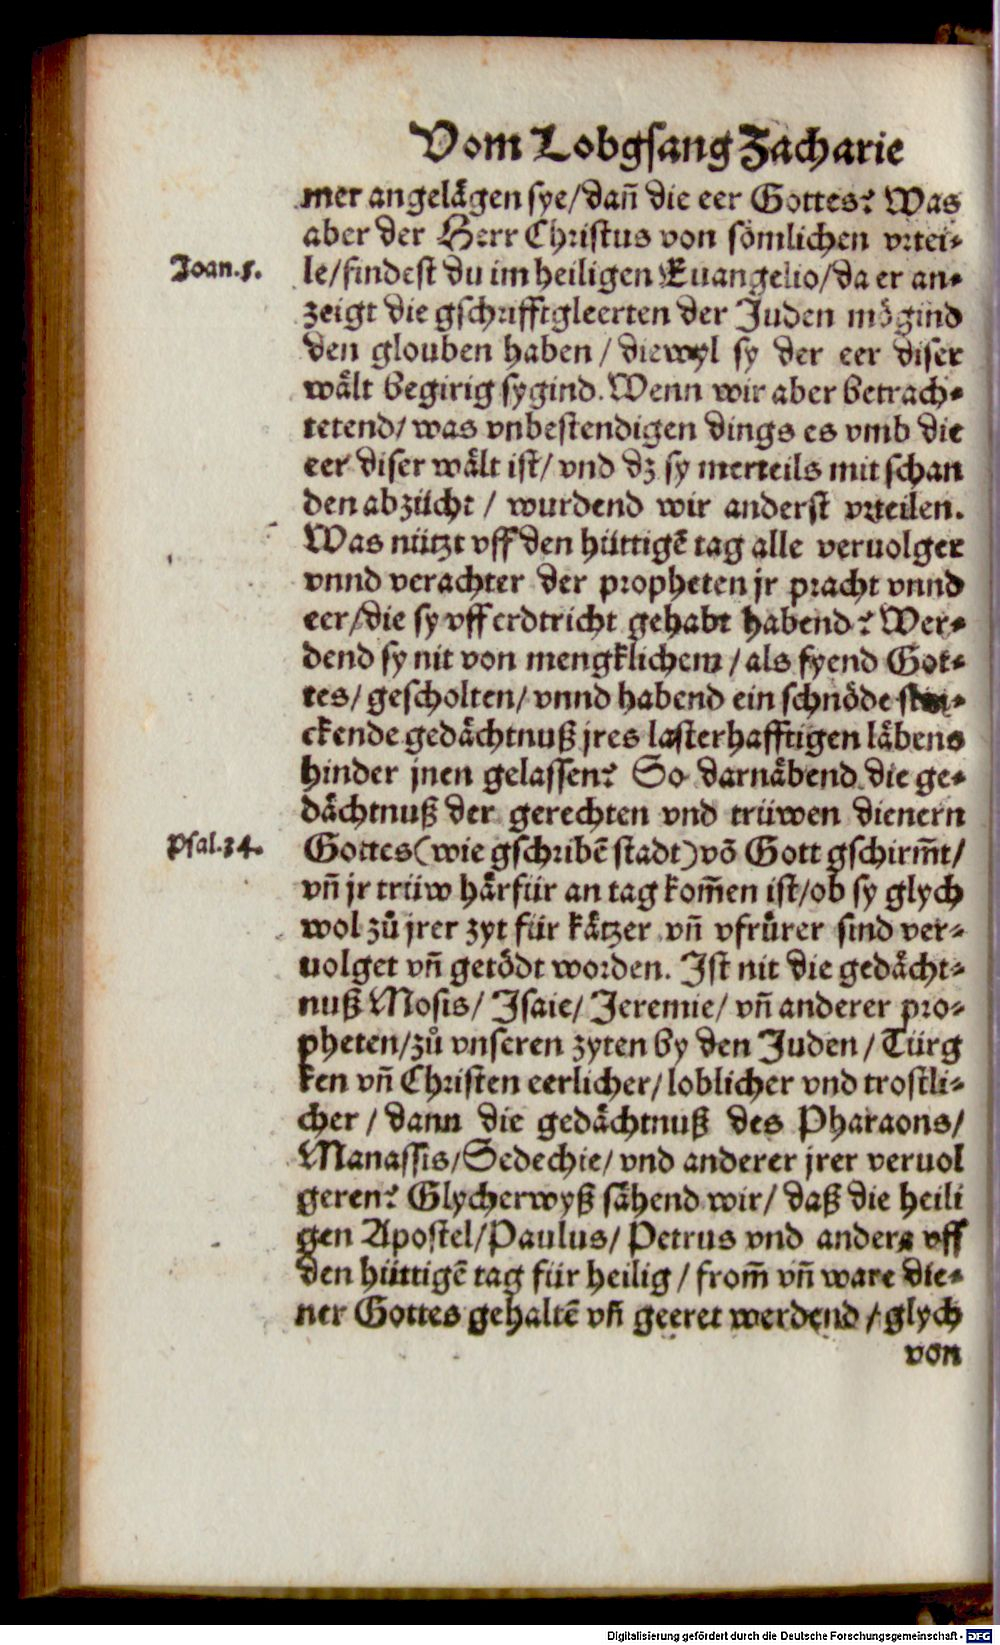 Vom Lobgsang Zacharie
mer angelägen sye/dañ die eer Gottes? Was
aber der Herr Christus von sömlichen vrtei-
Joan.5.
le/findest du im heiligen Euangelio/da er an-
zeigt die gschrifftgleerten der Juden mögind
den glouben haben / diewyl sy der eer diser
wält begirig sygind. Wenn wir aber betrach-
tetend/ was vnbestendigen dings es vmb die
eer diser wält ist/ vnd dz sy merteils mit schan
den abzücht / wurdend wir anderst vrteilen.
Was nützt vff den hüttigē tag alle veruolger
vnnd verachter der propheten jr pracht vnnd
eer/die sy vff erdtricht gehabt habend? Wer-
dend sy nit von mengklichem / als fyend Got-
tes/ gescholten/ vnnd habend ein schnöde
ckende gedächtnuß jres lasterhafftigen läbens
hinder jnen gelassen? So darnäbend die ge-
dächtnuß der gerechten vnd trüwen dienern
Psal.34.
Gottes(wie gschribē stadt)vō Gott gschirm̄t/
vñ jr trüw härfür an tag kom̄en ist/ob sy glych
wol zů jrer zyt für kätzer vñ vfrůrer sind ver-
uolget vñ getödt worden. Ist nit die gedächt-
nuß Mosis/ Isaie/ Jeremie/ vñ anderer pro-
pheten/zů vnseren zyten by den Juden / Türg
ken vñ Christen eerlicher/ loblicher vnd trostli-
cher / dann die gedächtnuß des Pharaons/
Manassis/Sedechie/ vnd anderer jrer veruol
geren? Glycherwyß sähend wir/ daß die heili
gen Apostel/Paulus/ Petrus vnd andere vff
den hüttigē tag für heilig / from̄ vñ ware die-
ner Gottes gehaltē vñ geeret werdend / glych
von
Digitalisierung gefördert durch die Deutsche Forschungsgemeinschaft - DFG